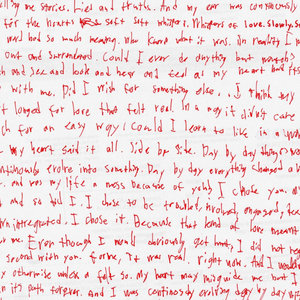 me stories. Lies and truths. And my ear was continuously
for the heart! soft soft whispers. Whispers of love. Slowly, s
well had so much meaning. Who knew what it was. In reality I
out and surrendered. Could I ever do anything but watch?
h and see and look and hear and feel as my heart had its
with me. Did I wish for something else... I think my
t longed for love that felt real. In a way it didn't care
ch for an easy way. Could I learn to live in a
my heart said it all. Side by side. Day by day things
continuously evolve into something. Day by day everything changed a
and was my life a mess because of you? I chose you.
and so did I. I chose to be troubled, involved, engaged,
intregrated. I chose it. Because that kind of love meant
me. Even though I would obviously get hurt, I did not
second with you. For me, it was real. Right now. And I
y otherwise unless I felt so. My heart may misguide me but I
in it's path forever. And I was continously evolving day by day